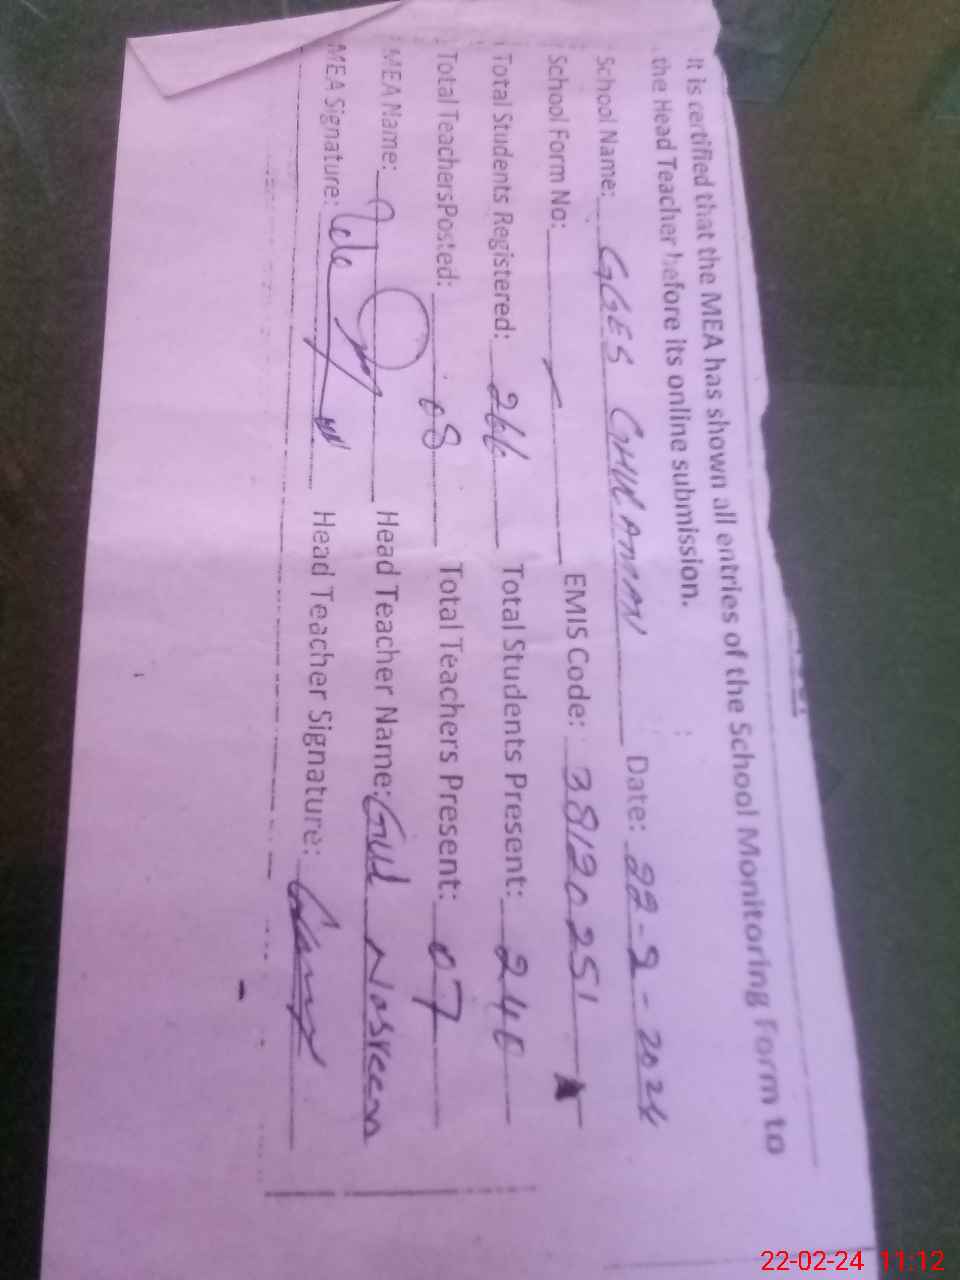 It is certified that the MEA has shown all entries of the School Monitoring Form to
the Head Teacher before its online submission.
School Name: GGES Date: 22-2-2024
School Form No: EMIS Code: 38120251
Total Students Registered: 266 Total Students Present: 240
Total TeachersPosted: 08 Total Teachers Present: 07
MEA Name: Head Teacher Name: Gul Nasreen
MEA Signature: Head Teacher Signature:
22-02-24 11:12